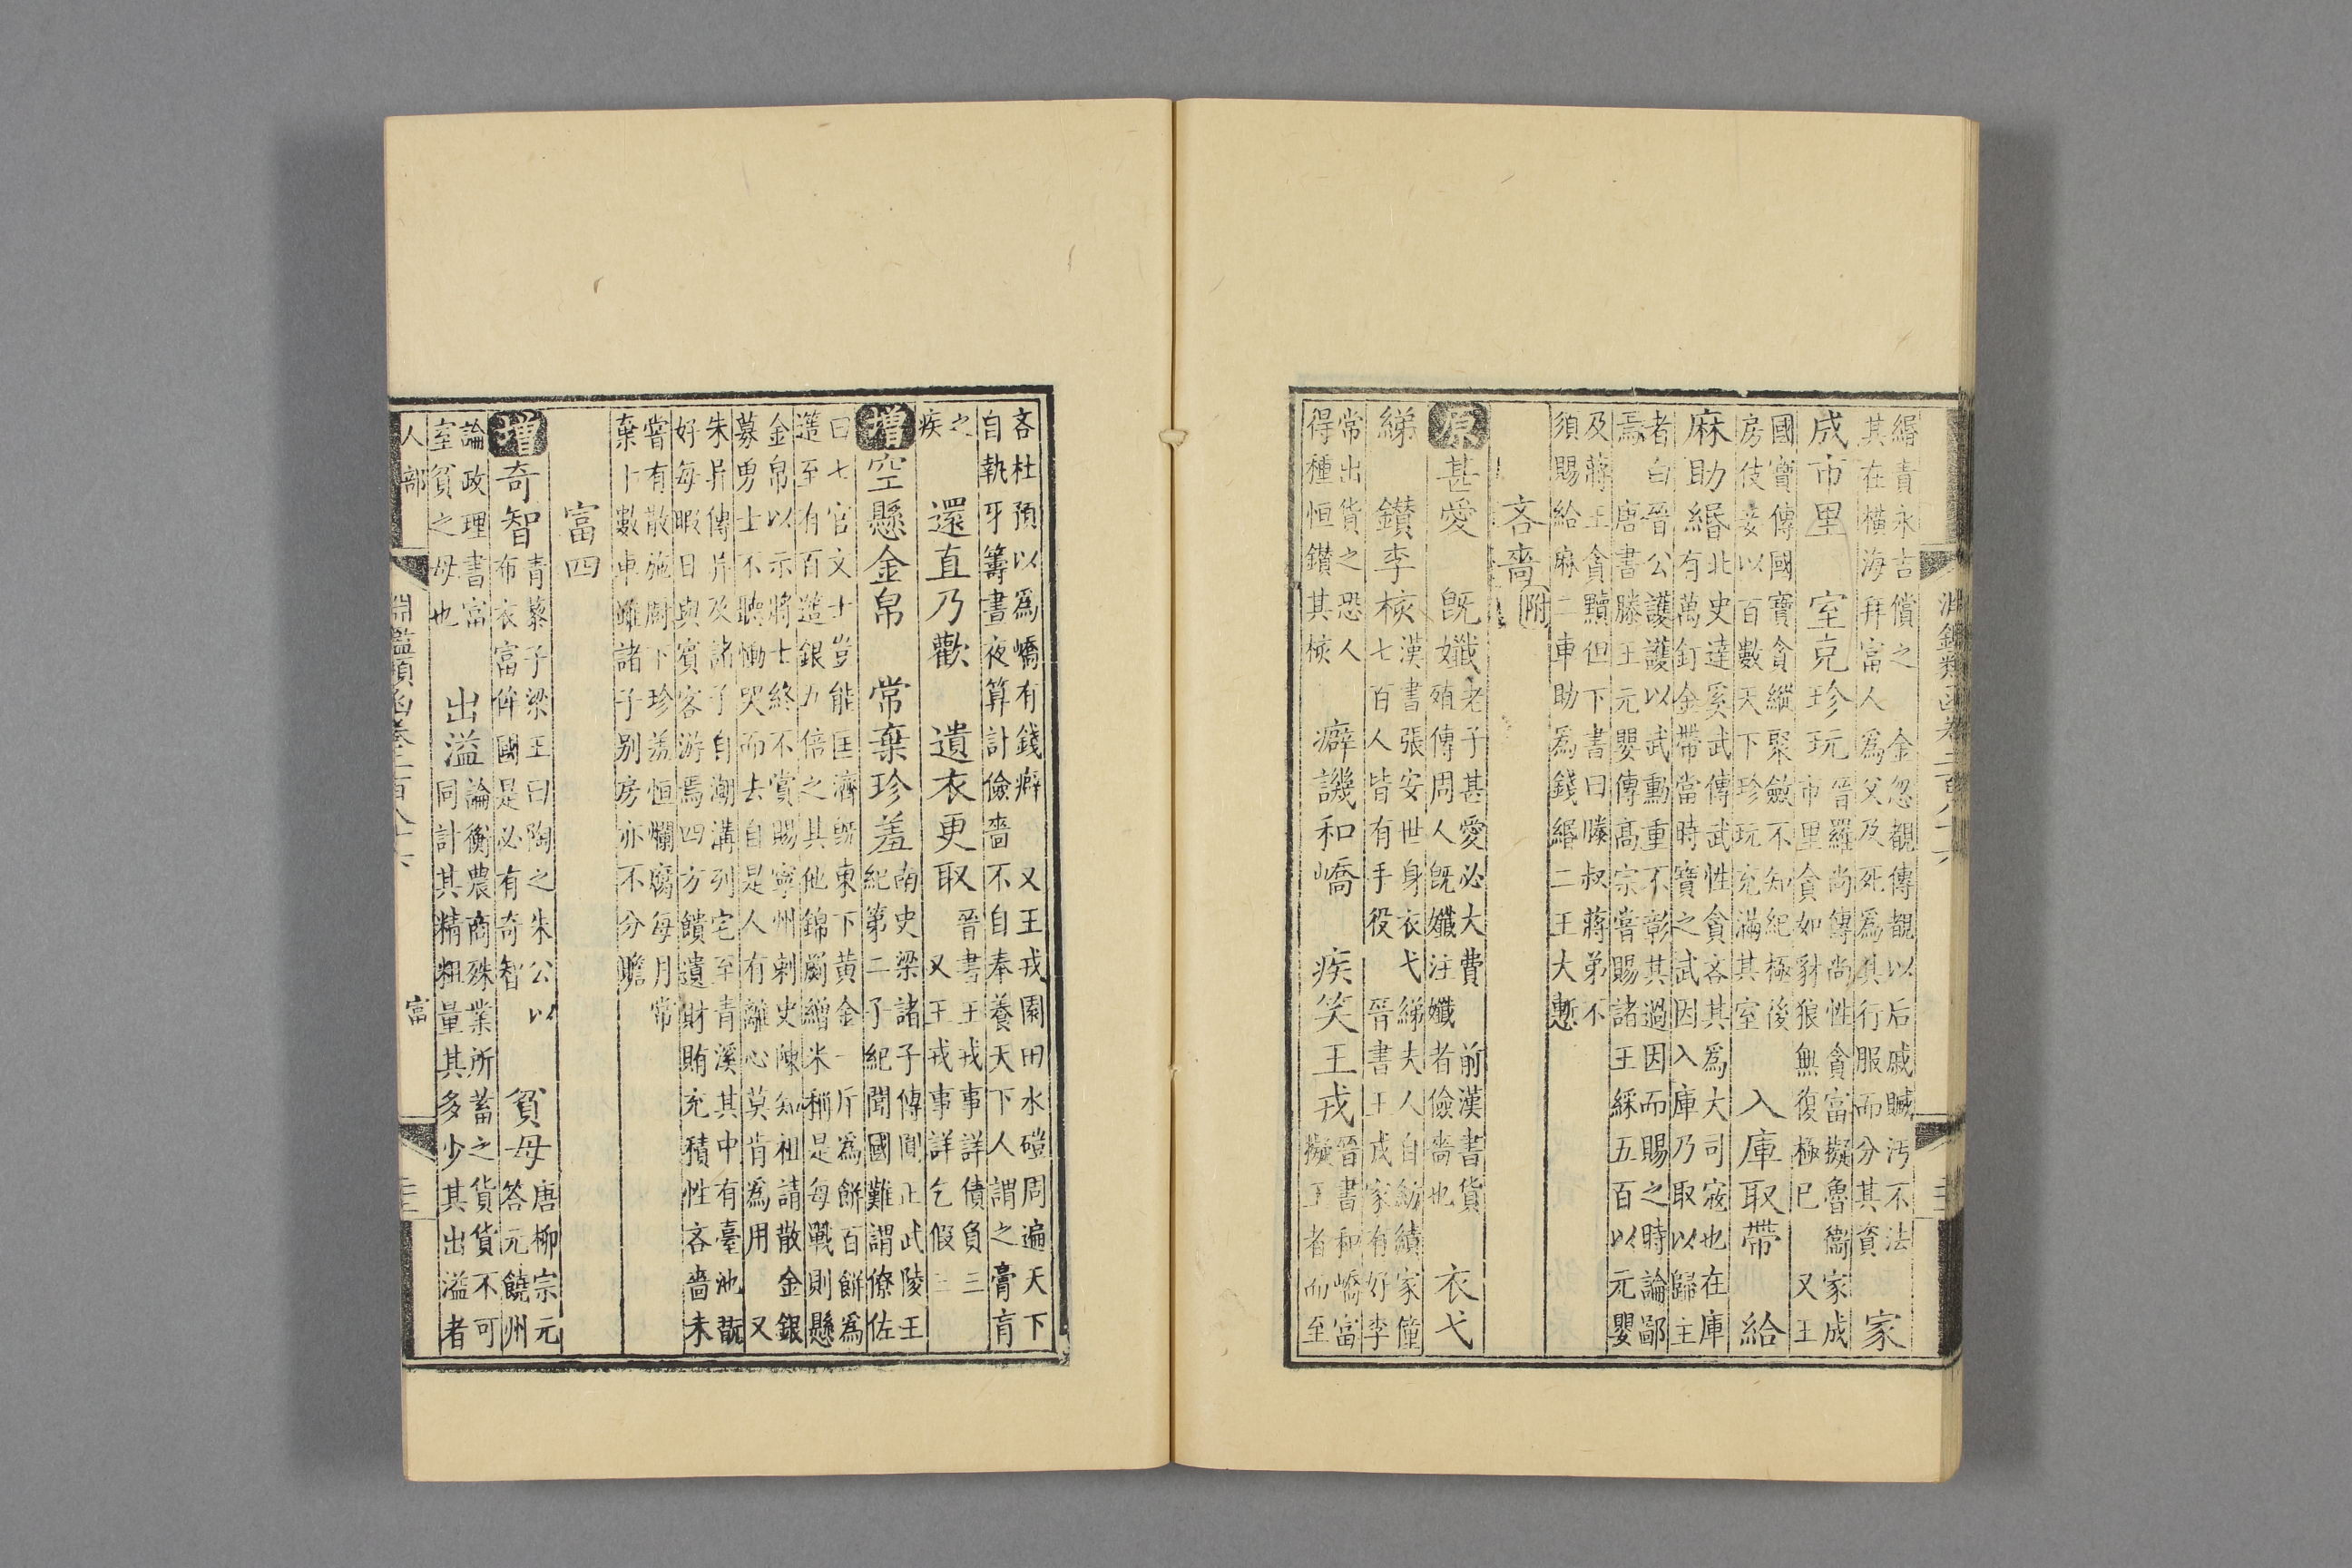 緡責永吉償之　金忽覩傳覩以后戚贓汚不法
其在橫海拜富人爲父及死爲其行服而分其資　家
成市里　室克珍玩
晉羅尚傳尚性貪富擬魯衞家成
市里貪如豺狼無復極已　又王
國寶傳國寶貪縱聚斂不知紀極後
房伎妾以百數天下珍玩充滿其室　入庫取帶　給
麻助緡
北史達奚武傳武性貪吝其爲大司寇也在庫
有萬釘金帶當時寶之武因入庫乃取以歸主
者白晉公護護以武勳重不彰其過因而賜之時論鄙
焉　唐書滕王元嬰傳高宗嘗賜諸王綵五百以元嬰
及蔣王貪黷但下書曰滕叔蔣弟不
須賜給麻二車助爲錢緡二王大慙
吝嗇附
原甚愛　旣孅
老子甚愛必大費　前漢書貨
殖傳周人旣孅注孅者儉嗇也　衣弋
綈　鑚李核
漢書張安世身衣弋綈夫人自紡績家僮
七百人皆有手役　晉書王戎家有好李
常出貨之恐人
得種恒鑚其核　癖譏和嶠　疾笑王戎
晉書和嶠富
擬王者而至
吝杜預以爲嶠有錢癖　又王戎園田水磑周遍天下
自執牙籌晝夜算計儉嗇不自奉養天下人謂之膏肓
之
疾　還直乃歡　遺衣更取
晉書王戎事詳債負三
又王戎事詳乞假三
增空懸金帛　常棄珍羞
南史梁諸子傳圓正武陵王
紀第二子紀聞國難謂僚佐
曰七官文士豈能匡濟旣東下黃金一斤爲餅百餅爲
簉至有百簉銀五倍之其他錦罽繒采稱是每戰則懸
金帛以示將士終不賞賜寧州刺史陳知祖請散金銀
募勇士不聽慟哭而去自是人有離心莫肯爲用　又
朱异傳异及諸子自潮溝列宅至青溪其中有臺池翫
好每暇日與賓客游焉四方饋遺財賄充積性吝嗇未
嘗有散施厨下珍羞恒爛腐每月常
棄十數車雖諸子别房亦不分贍
富四
增奇智
青藜子梁王曰陶之朱公以
布衣富侔國是必有奇智　貧母
唐柳宗元
答元饒州
論政理書富
室貧之母也　出溢
論衡農商殊業所蓄之貨貨不可
同計其精粗量其多少其出溢者
人部
淵鑑類函卷二百八十六
富